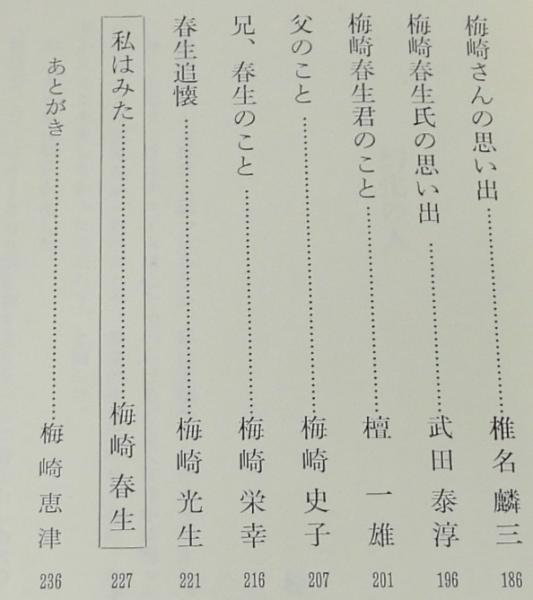 梅崎さんの思い出……………………椎名麟三 186
梅崎春生氏の思い出……………………武田泰淳 196
梅崎春生君のこと……………………檀一雄 201
父のこと……………………梅崎史子 207
兄、春生のこと……………………梅崎栄幸 216
春生追懐……………………梅崎光生 221
私はみた……………………梅崎春生 227
あとがき……………………梅崎恵津 236